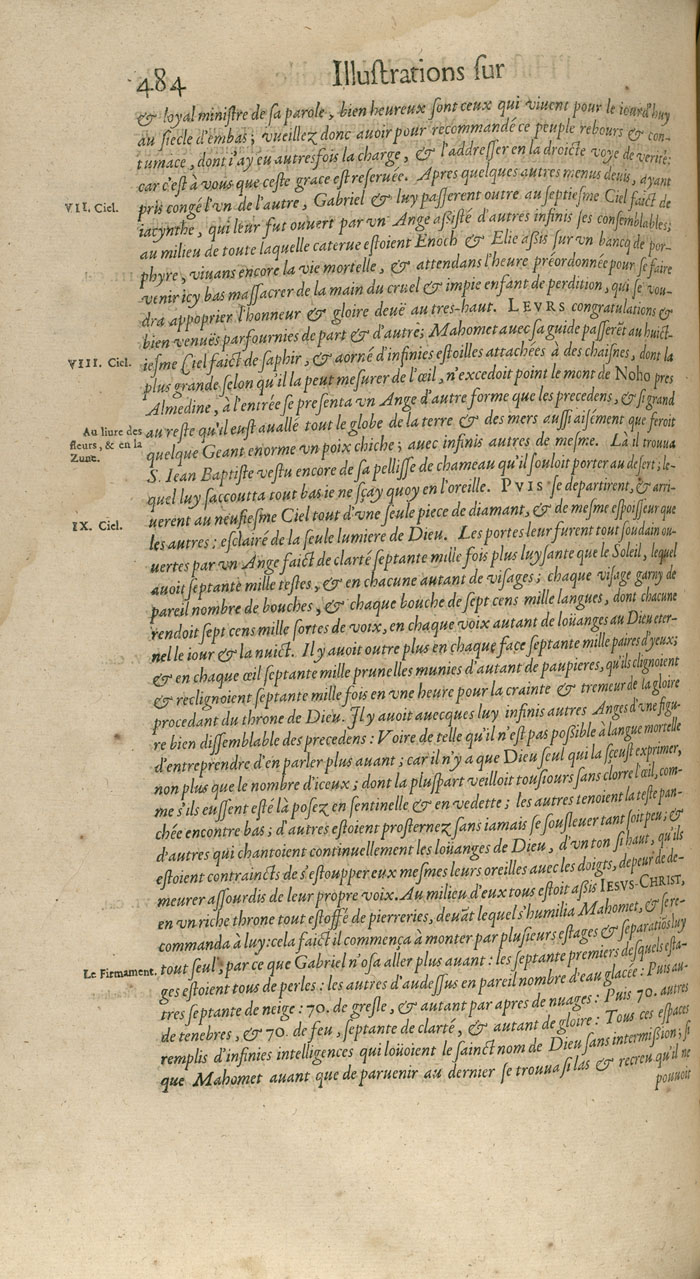 484 Illustrations sur
& loyal ministre de sa parole, bien heureux sont ceux qui viuent pour le iourd'huy
au siecle d'embas; vueillez donc auoir pour recommandé ce peuple rebours & con-
tumace, dont i'ay eu autresfois la charge, & l'addresser en la droicte voye de verité;
car c'est à vous que ceste grace est reseruée. Apres quelques autres menus deuis, ayant
VII. Ciel. pris congé l'vn de l'autre, Gabriel & luy passerent outre au septiesme Ciel faict de
iacynthe, qui leur fut ouuert par vn Ange assisté d'autres infinis ses consemblables;
au milieu de toute laquelle caterue estoient Enoch & Elie assis sur vn bancq de por-
phyre, viuans encore la vie mortelle, & attendans l'heure préordonnée pour se faire
venir icy bas massacrer de la main du cruel & impie enfant de perdition, qui se vou-
dra appoprier l'honneur & gloire deuë au tres-haut. LEVRS congratulations &
bien venuës parfournies de part & d'autre; Mahomet auec sa guide passerēt au huict-
VIII. Ciel. iesme Ciel faict de saphir, & aorné d'infinies estoilles attachées à des chaisnes, dont la
plus grande selon qu'il la peut mesurer de l'œil, n'excedoit point le mont de Noho pres
Almedine, à l'entrée se presenta vn Ange d'autre forme que les precedens, & si grand
Au liure des au reste qu'il eust auallé tout le globe de la terre & des mers aussi aisément que feroit
fleurs, & en la quelque Geant enorme vn poix chiche; auec infinis autres de mesme. Là il trouua
Zune. S. Iean Baptiste vestu encore de sa pellisse de chameau qu'il souloit porter au desert; le-
quel luy saccoutta tout bas ie ne sçay quoy en l'oreille. PVIS se departirent, & arri-
IX. Ciel. uerent au neufiesme Ciel tout d'vne seule piece de diamant, & de mesme espoisseur que
les autres; esclairé de la seule lumiere de Dieu. Les portes leur furent tout soudain ou-
uertes par vn Ange faict de clarté septante mille fois plus luysante que le Soleil, lequel
auoit septante mille testes, & en chacune autant de visages; chaque visage garny de
pareil nombre de bouches, & chaque bouche de sept cens mille langues, dont chacune
rendoit sept cens mille sortes de voix, en chaque voix autant de loüanges au Dieu eter-
nel le iour & la nuict. Il y auoit outre plus en chaque face septante mille paires d'yeux;
& en chaque œil septante mille prunelles munies d'autant de paupieres, qu'ils clignoient
& reclignoient septante mille fois en vne heure pour la crainte & tremeur de la gloire
procedant du throne de Dieu. Il y auoit auecques luy infinis autres Anges d'vne figu-
re bien dissemblable des precedens: Voire de telle qu'il n'est pas possible à langue mortelle
d'entreprendre d'en parler plus auant; car il n'y a que Dieu seul qui la sceust exprimer,
non plus que le nombre d'iceux; dont la pluspart veilloit tousiours sans clorre l'œil, com-
me s'ils eussent esté là posez en sentinelle & en vedette; les autres tenoient la teste pan-
chée encontre bas; d'autres estoient prosternez sans iamais se sousleuer tant soit peu; &
d'autres qui chantoient continuellement les loüanges de Dieu, d'vn ton si haut, qu'ils
estoient contraincts de s'estoupper eux mesmes leurs oreilles auec les doigts, de peur de de-
meurer assourdis de leur propre voix. Au milieu d'eux tous estoit assis IESVS-CHRIST,
en vn riche throne tout estoffé de pierreries, deuāt lequel s'humilia Mahomet, & se re-
commanda à luy: cela faict il commença à monter par plusieurs estages & separatiōs luy
Le Firmament. tout seul, par ce que Gabriel n'osa aller plus auant: les septante premiers desquels esta-
ges estoient tous de perles: les autres d'audessus en pareil nombre d'eau glacée: Puis au-
tres septante de neige: 70. de gresle, & autant par apres de nuages: Puis 70. autres
de tenebres, & 70. de feu, septante de clarté, & autant de gloire: Tous ces espaces
remplis d'infinies intelligences qui loüoient le sainct nom de Dieu sans intermission; si
que Mahomet auant que de paruenir au dernier se trouua si las & recreu qu'il ne
pouuoit